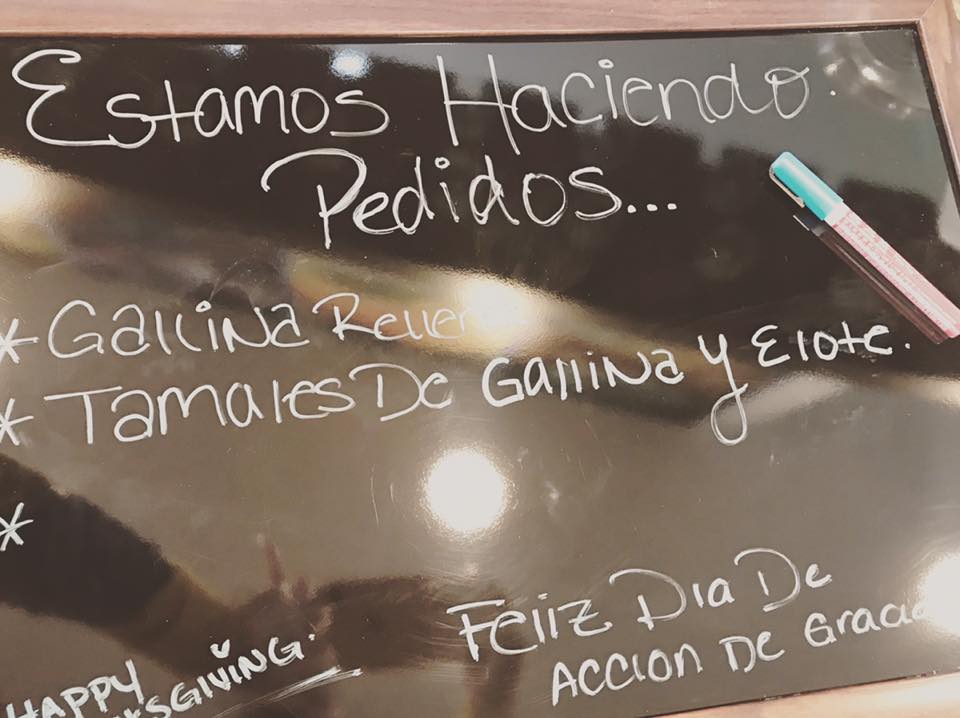 Estamos Haciendo.
Pedidos...
* Gallina
* Tamales De Gallina y Elote.
*
Feliz Dia De
Accion De
HAPPY